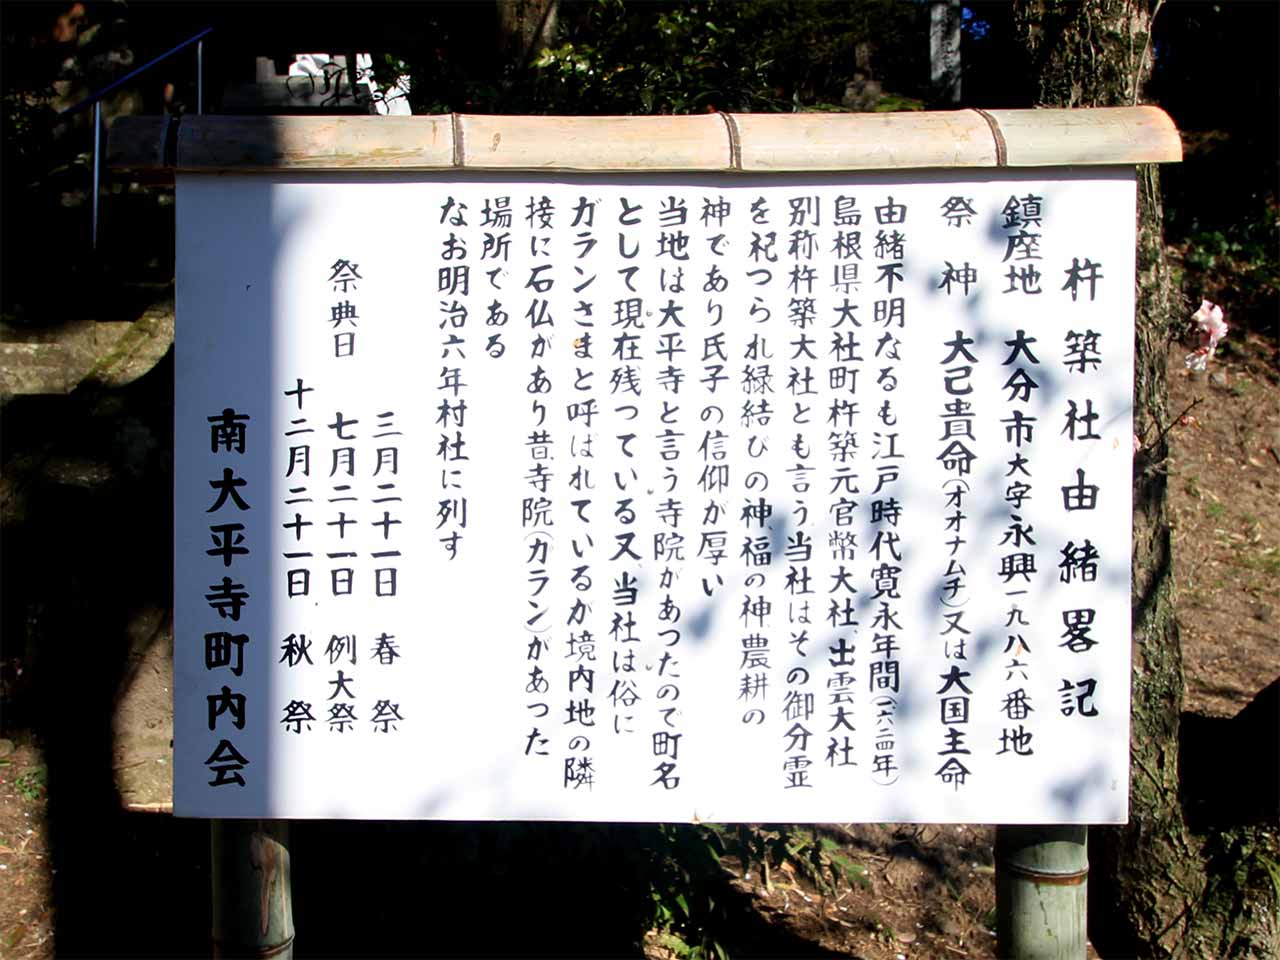 杵築社由緒畧記
鎮座地 大分市大字永興一九八六番地
祭神 大己貴命(オオナムチ)又は大国主命
由緒不明なるも江戸時代寛永年間(一六二四年)
島根県大社町杵築元官幣大社、出雲大社
別称杵築大社とも言う当社はその御分霊
を祀つられ緑結びの神、福の神農耕の
神であり氏子の信仰が厚い
当地は大平寺と言う寺院があつたので町名
として現在残つている又、当社は俗に
ガランさまと呼ばれているが境内地の隣
接に石仏があり昔、寺院(ガラン)があった
場所である
なお明治六年村社に列す
祭典日
三月二十一日 春祭
七月二十一日 例大祭
十二月二十一日 秋祭
南大平寺町内会